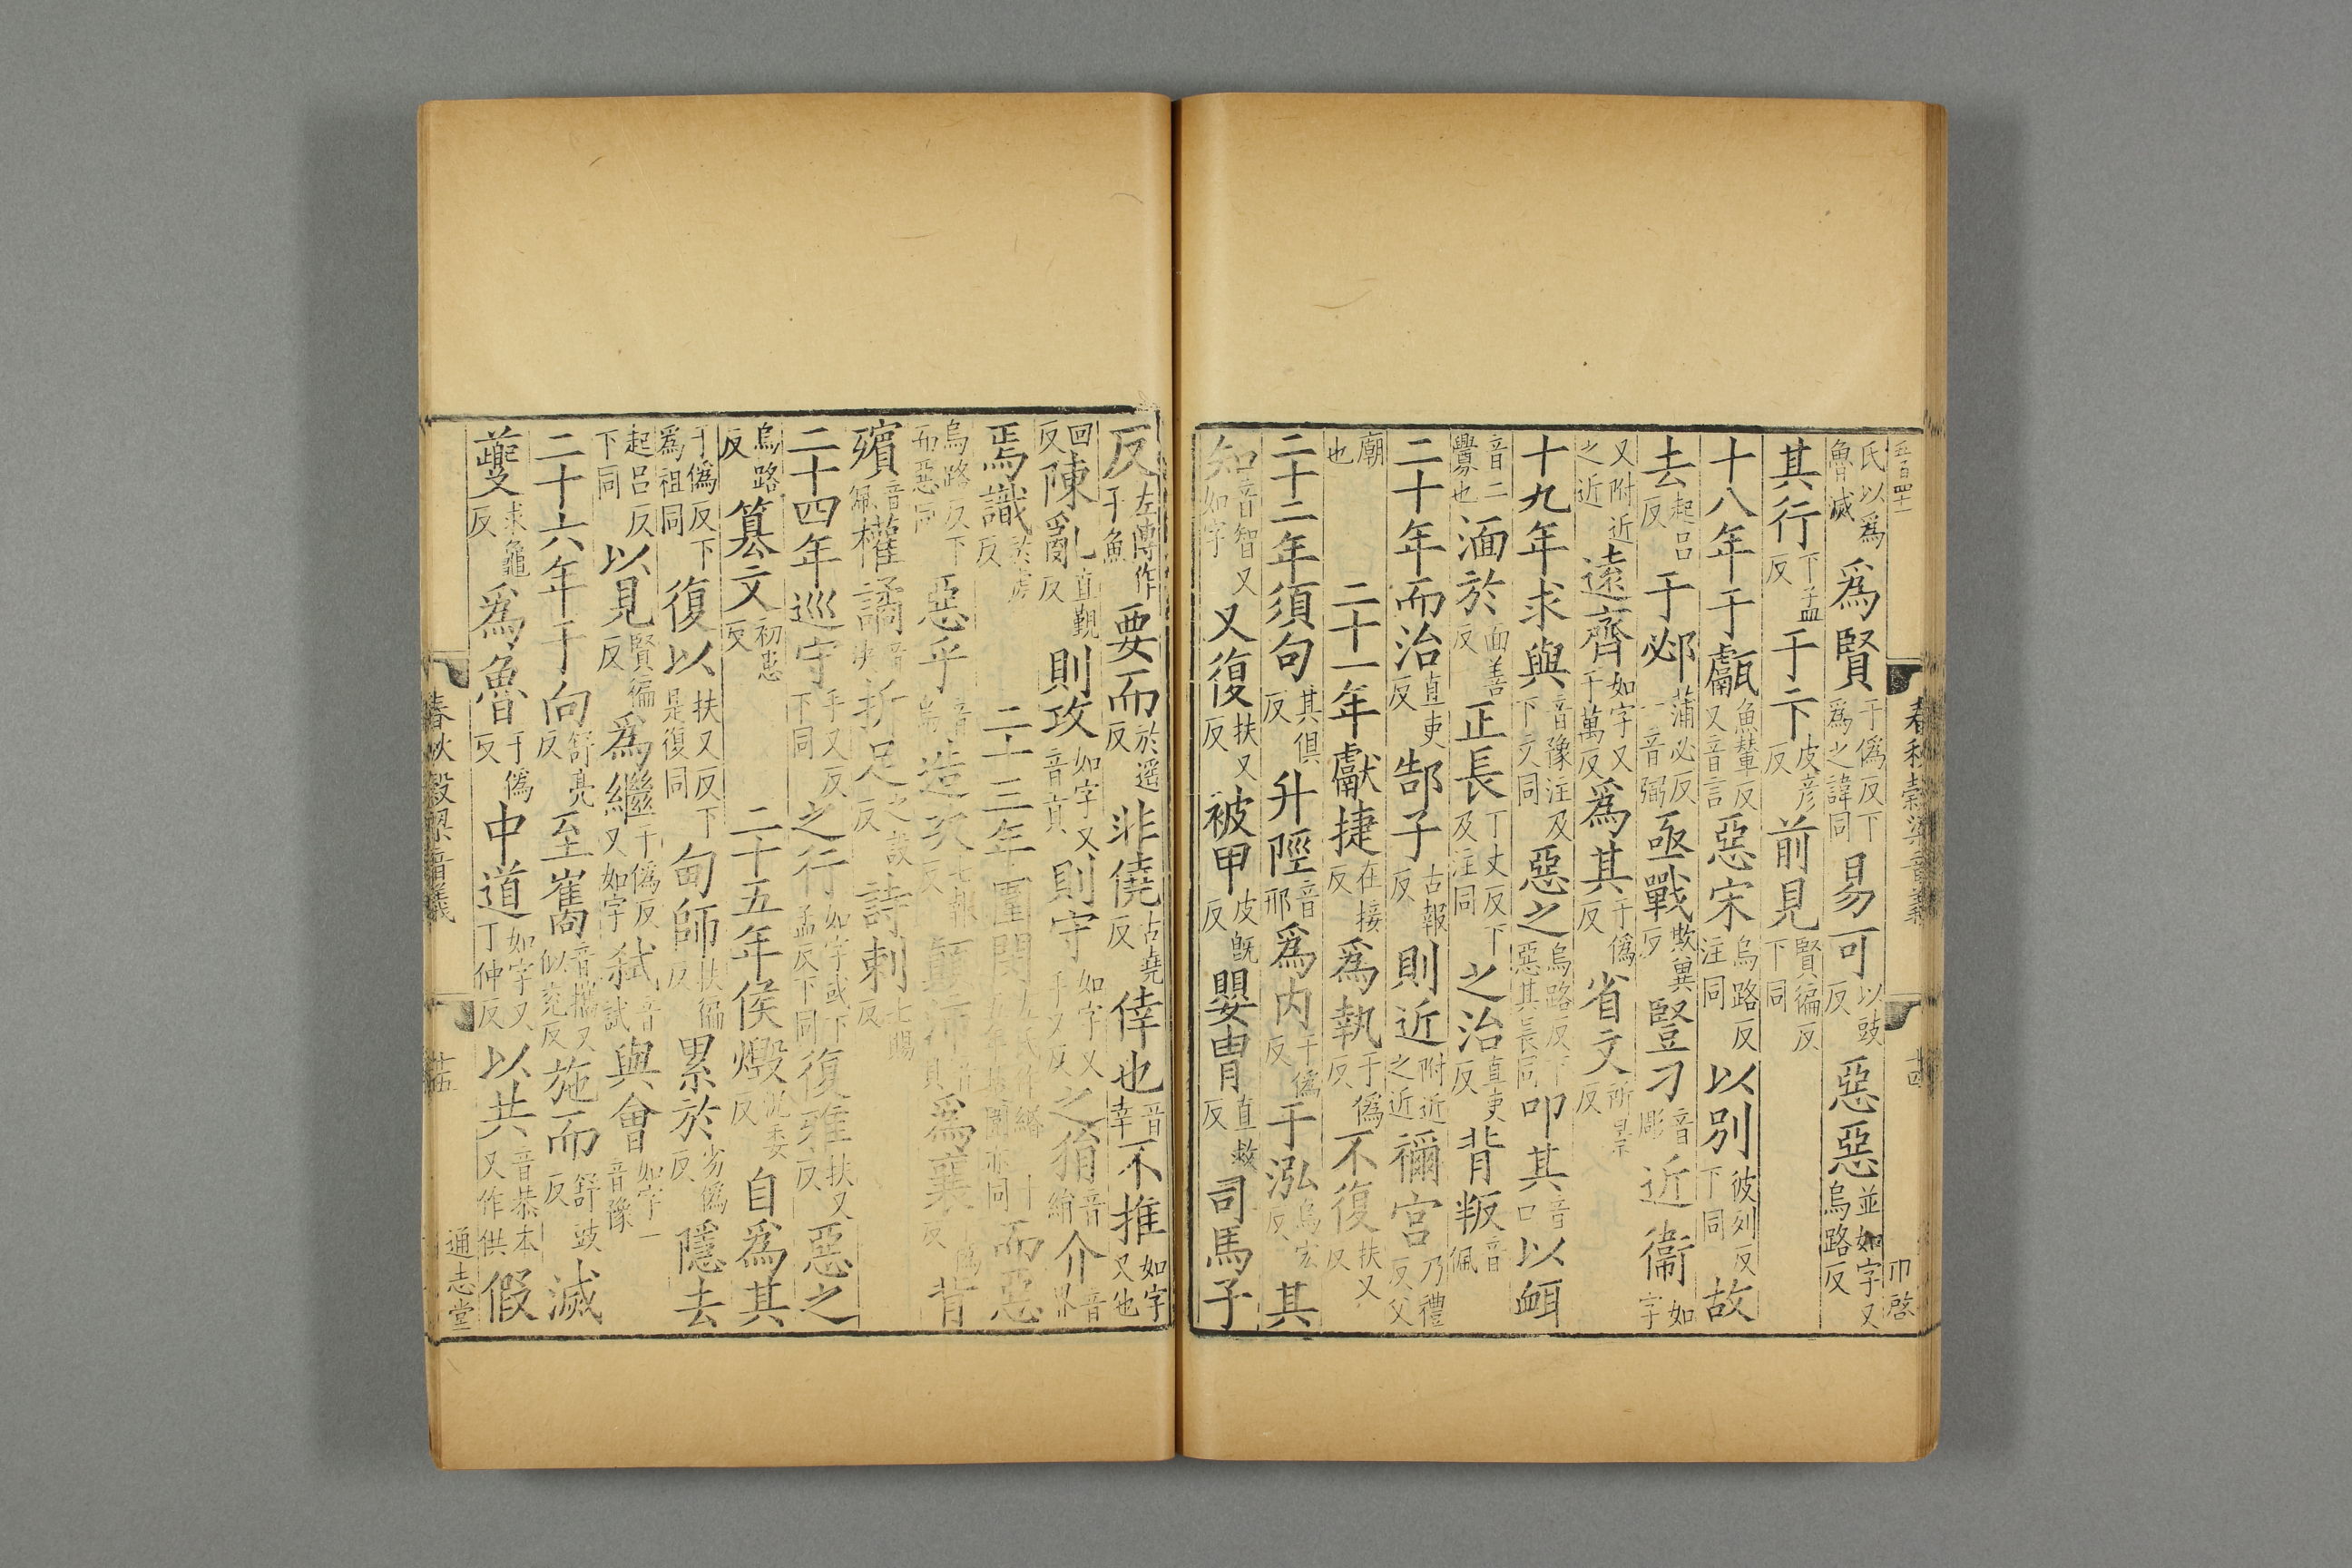 五百四十
氏以爲魯滅爲賢于僞反下爲之諱同易可以豉反惡惡並如字又烏路反
其行下孟反于卞皮彦反前見賢徧反下同
十八年于甗魚輦反又音言惡宋烏路反注同以別彼列反下同故
去起呂反于邲蒲必反一音弼亟戰欺兾反豎刁音彫近衞如字
又附近之近遠齊如字又于萬反爲其于僞反省文所景反
十九年求與音豫注及下文同惡之烏路反下惡其長同叩其音口以衈
音二釁也湎於面善反正長丁丈反下及注同之治直吏反背叛音佩
二十年而治直吏反郜子古報反則近附近之近禰宮乃禮反父
廟也二十一年獻捷在接反爲執于僞反不復扶又反
二十二年須句其俱反升陘音邢爲内于僞反于泓烏宏反其
知音智又如字又復扶又反被甲皮旣反嬰胄直救反司馬子
春秋穀梁音義
十四
卩啓
反左傳作子魚要而於遥反非僥古堯反倖也音幸不推如字又他
回反陳亂直覲反則攻如字又音貢則守如字又手又反之猏音絹介音界
焉識於虔反二十三年圍閔左氏作緡十五年圍同而惡
烏路反下而惡同惡乎音烏造次七報反顚沛音貝爲襄于僞反背
殯音佩權譎音決折足之設反詩刺七賜反
二十四年巡守手又反下同之行如字或下孟反下同復雅扶又反惡之
烏路反簒文初患反二十五年侯燬況委反自爲其
于僞反下爲祖同復以扶又反下是復同甸師扶徧反累於劣僞反隱去
起呂反下同以見賢徧反爲繼于僞反又如字弑音試與會如字一音豫
二十六年于向舒亮反至巂音攜又似兖反施而舒豉反滅
夔求龜反爲魯于僞反中道如字又丁仲反以共音恭本又作供假
春秋穀梁音義
十五
通志堂